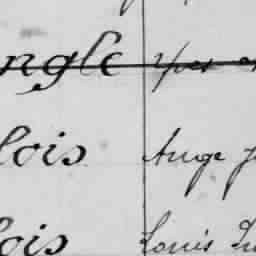 ngle Yves
lois Ange
lois Louis